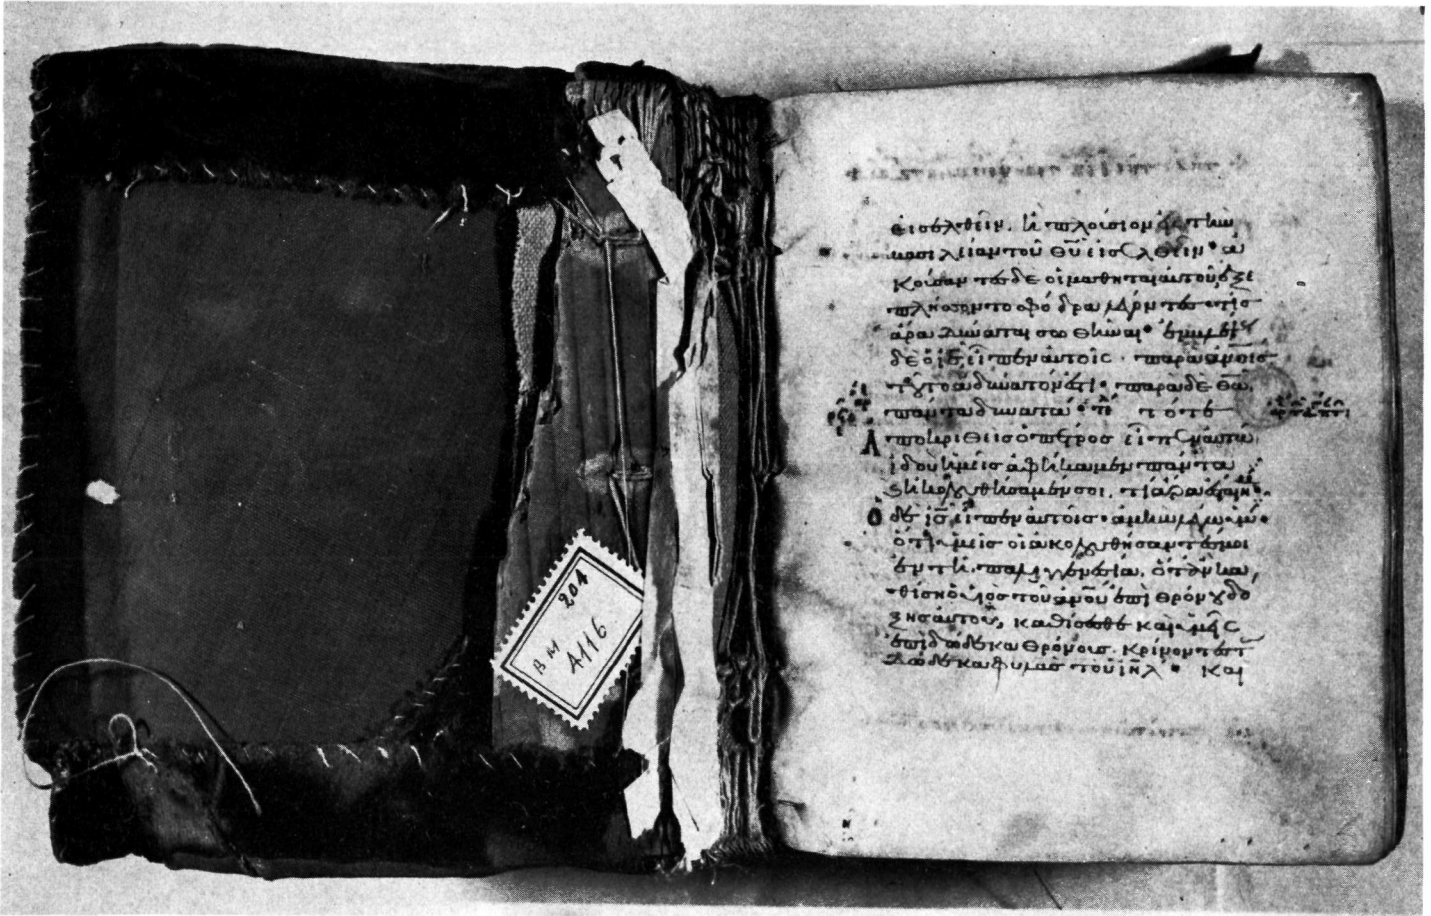 204
BM
A116
εἰσελθεῖν. ἢ πλούσιον εἰς τὴν
βασιλείαν τοῦ θ̅υ̅ εἰσελθεῖν· ἀ
κούσαντες δὲ οἱ μαθηταὶ αὐτοῦ, ἐξε
πλήσσοντο σφόδρα λέγοντες· τίς
ἄρα δύναται σωθῆναι·
δὲ ὁ ι̅ς̅ εἶπεν αὐτοῖς· παρὰ ἀ̅ν̅ο̅ι̅ς̅
τοῦτο ἀδύνατόν ἐστι· παρὰ δὲ θ̅ω̅
πάντα δυνατά· τότε
Ἀποκριθεὶς ὁ πέτρος εἶπεν αὐτῶ
ἰδοὺ ἡμεῖς ἀφήκαμεν πάντα
ἠκολουθήσαμέν σοι. τί ἄρα
Ὁ δὲ ι̅ς̅ εἶπεν αὐτοῖς· ἀμὴν λέγω ὑμῖν·
ὅτι ὑμεῖς οἱ ἀκολουθήσαντές μοι
ἐν τῆ παλιγγενεσία, ὅταν κα
θίση ὁ υἱὸς τοῦ ἀ̅ν̅ο̅υ̅ ἐπὶ θρόνου δό
ξης αὐτοῦ, καθίσεσθε καὶ ὑμεῖς
ἐπὶ δώδεκα θρόνους. κρίνοντες τ
δώδεκα φυλὰς τοῦ ι̅η̅λ̅· Καὶ